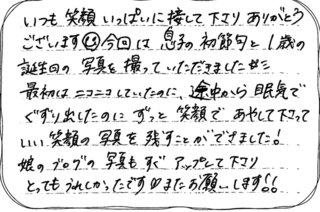 いつも笑顔いっぱいに接して下さりありがとう
ございます😊今回は息子の初節句と1歳の
誕生日の写真を撮っていただきました
最初はニコニコしていたのに、途中から眠気で
ぐずり出したのにずっと笑顔であやして下さって
いい笑顔の写真を残すことができました!
娘のブログの写真もすぐアップして下さり
とってもうれしかったです♡またお願いします!!